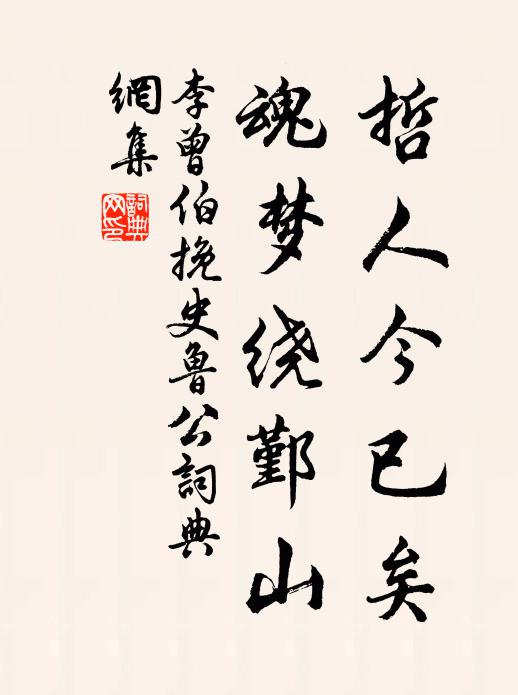 哲人今已矣
魂梦绕鄞山
李曾伯挽史鲁公詞典
網集
詞典网印